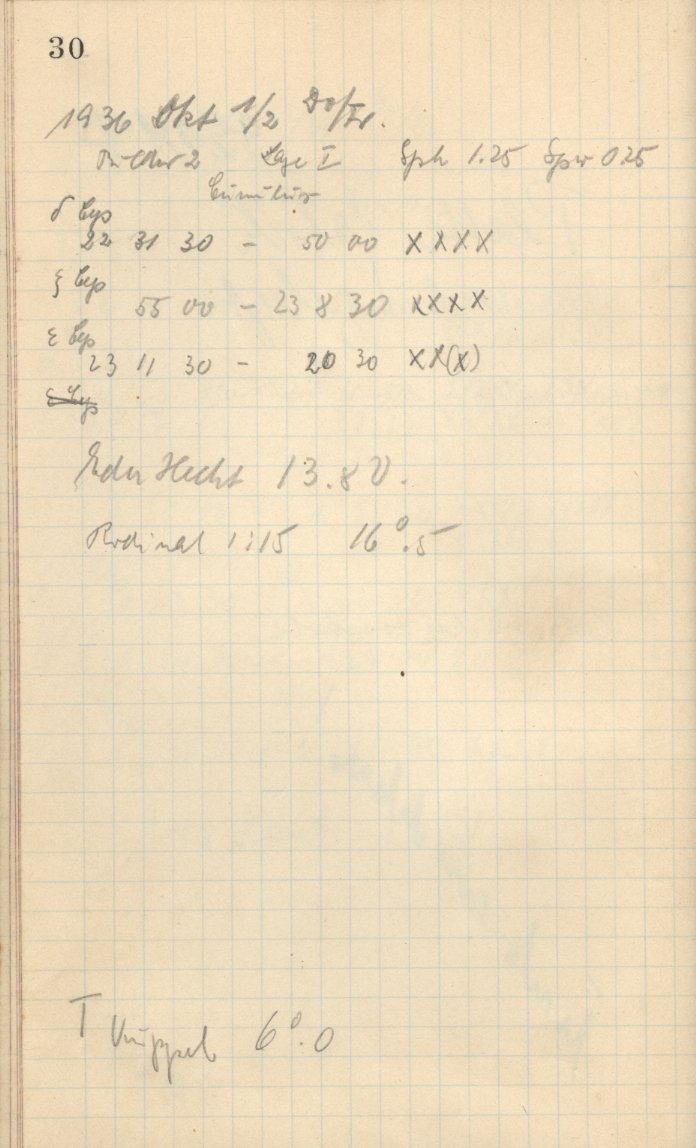 30
1936 Okt 1/2 Do/Fr.
2 Lage I Sph 1.25 Spw 0.25
Cumulus
δ Cyg
22 31 30 - 50 00 XXXX
ξ Cyg
55 00 - 23 8 30 XXXX
ε Cyg
23 11 30 - 20 30 XX(X)
ε Cyg
Eder Hecht 13.8 V.
Rodinal 1:15 16°.5
T Kuppel 6°.0